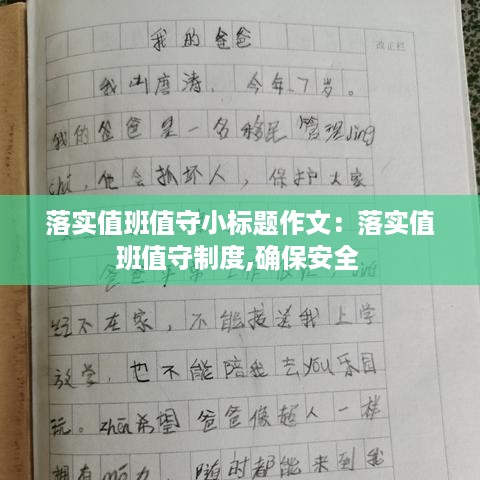 我的爸爸
改正栏
我叫唐涛，今年7岁。
我的爸爸是一名移民管理jing
chá，他会抓坏人，保护大家
落实值班值守小标题作文：落实值
班值守制度,确保安全
爸爸
经不在家，不能接送我上学
放学，也不能陪我去you乐园
玩。zhēn希望爸爸像超人一样
拥有mó力，随时都能来到我